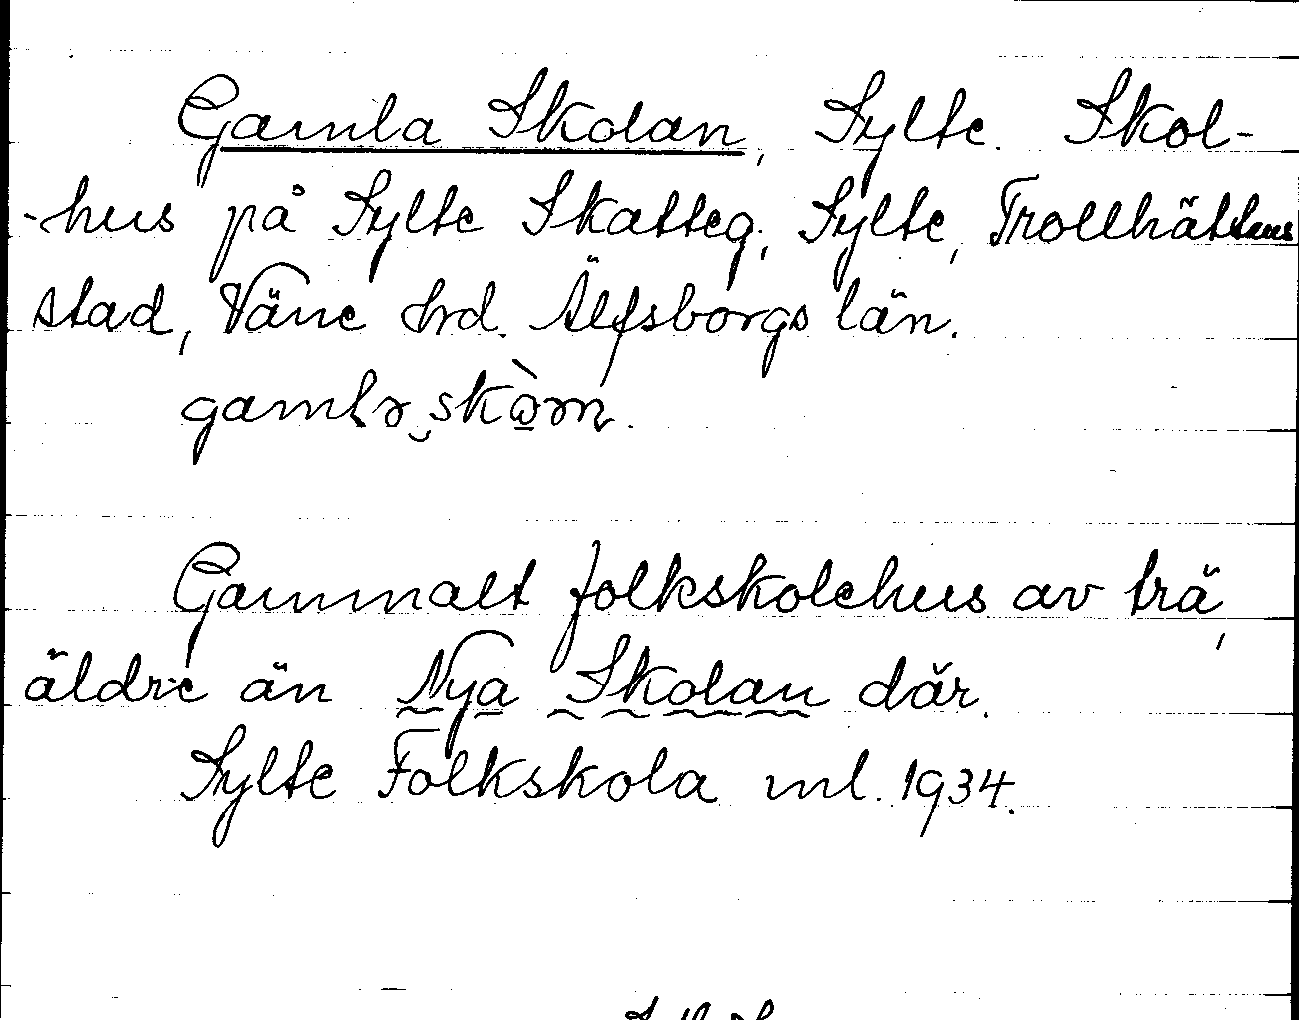 Gamla Skolan, Sylte. Skol-
-hus på Sylte Skatteg., Sylte, Trollhättans
stad, Väne hrd. Älfsborgs län.
Gammalt folkskolehus av trä,
äldre än Nya Skolan där.
Sylte Folkskola ml. 1934.